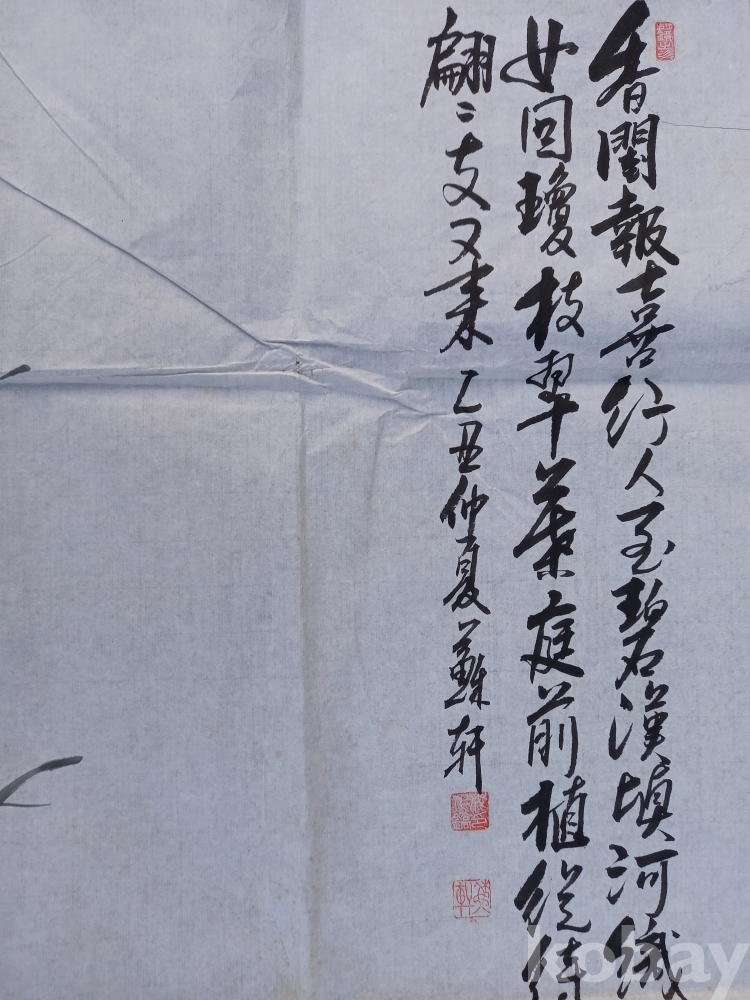 香閨報喜行人至碧漢填河織
女回瓊枝翠葉庭前植從待
翩〻去又来 乙丑仲夏 軒
kobay